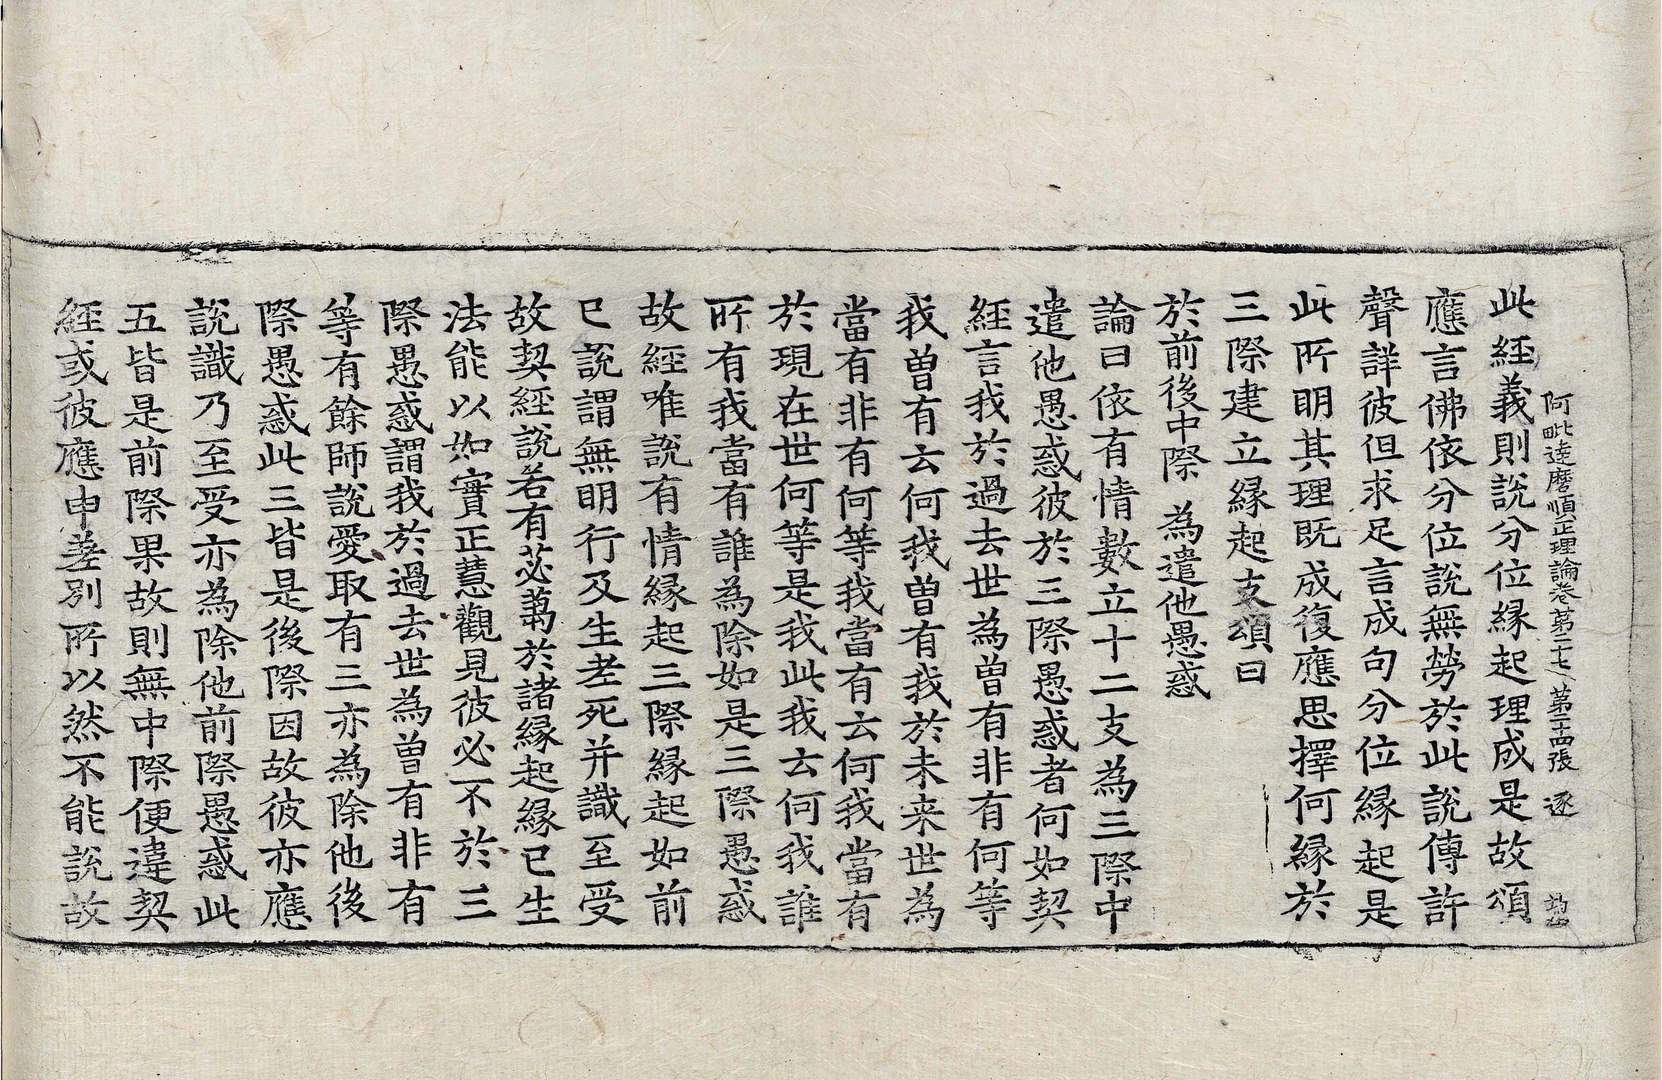 阿毗達磨順正理論卷第二十七 第二十四張 逐
此經義則說分位緣起理成是故頌
應言佛依分位說無勞於此說傳許
聲詳彼但求足言成句分位緣起是
此所明其理既成復應思擇何緣於
三際建立緣起支頌曰
於前後中際 為遣他愚惑
論曰依有情數立十二支為三際中
遣他愚惑彼於三際愚惑者何如契
經言我於過去世為曾有非有何等
我曾有云何我曾有我於未来世為
當有非有何等我當有云何我當有
於現在世何等是我此我云何我誰
所有我當有誰為除如是三際愚惑
故經唯說有情緣起三際緣起如前
已說謂無明行及生老死并識至受
故契經說若有苾蒭於諸緣起緣已生
法能以如實正慧觀見彼必不於三
際愚惑謂我於過去世為曾有非有
等有餘師說愛取有三亦為除他後
際愚惑此三皆是後際因故彼亦應
說識乃至受亦為除他前際愚惑此
五皆是前際果故則無中際便違契
經或彼應申差別所以然不能說故